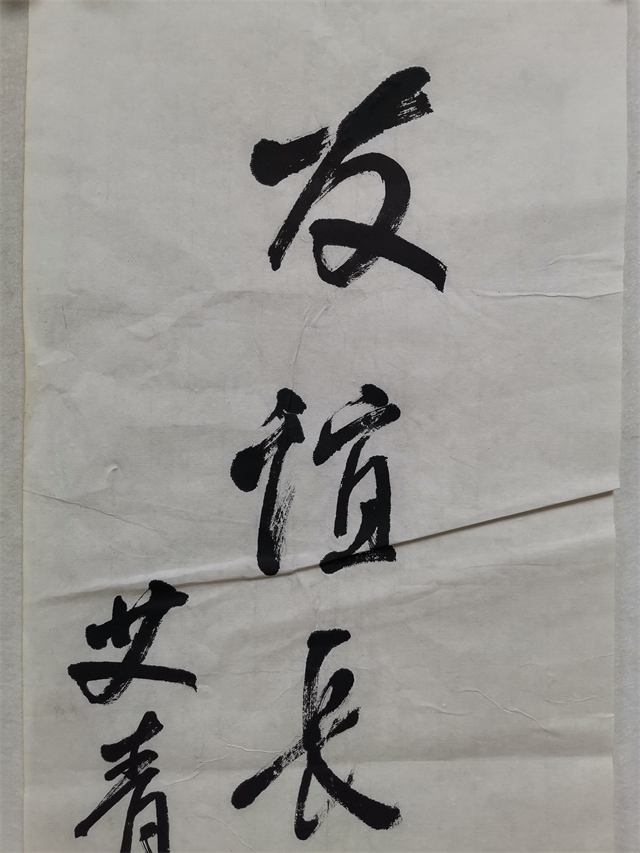 友谊长
艾青